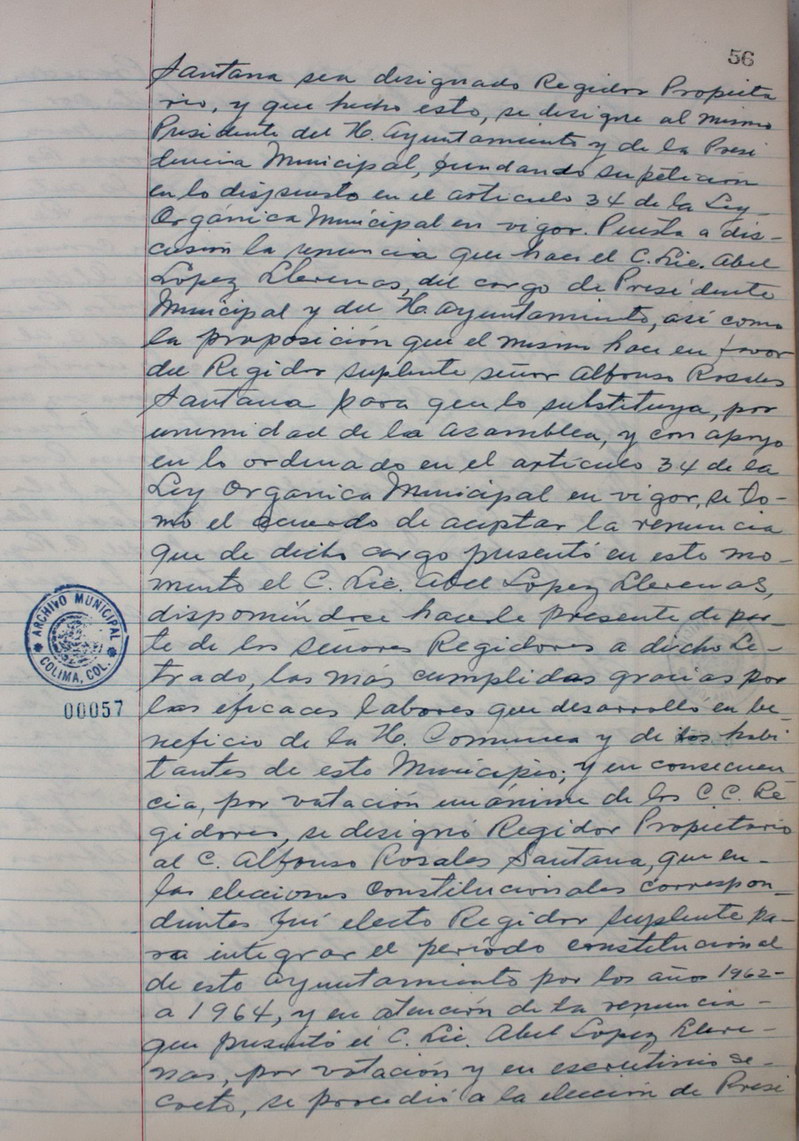 56
Santana sea designado Regidor Propieta
rio, y que hecho esto, se designe al mismo
Presidente del H. Ayuntamiento y de la Presi
dencia Municipal, fundando su petición
en lo dispuesto en el artículo 34 de la Ley
Orgánica Municipal en vigor. Puesta a dis-
cusión la renuncia que hace el C. Lic. Abel
Lopez Llerenas, del cargo de Presidente
Municipal y del H. Ayuntamiento, así como
la proposición que el mismo hace en favor
del Regidor suplente señor Alfonso Rosales
Santana para que lo substituya, por
unanimidad de la asamblea, y con apoyo
en lo ordenado en el artículo 34 de la
Ley Orgánica Municipal en vigor, se to-
mó el acuerdo de aceptar la renuncia
que de dicho cargo presentó en este mo-
mento el C. Lic. Abel Lopez Llerenas,
disponiéndose hacerle presente de par-
te de los señores Regidores a dicho Le-
trado, las más cumplidas gracias por
las eficaces labores que desarrolló en be-
neficio de la H. Comuna y de los habi
tantes de este Municipio; y en consecuen
cia, por votación unánime de los C.C. Re-
gidores, se designó Regidor Propietario
al C. Alfonso Rosales Santana, que en-
las elecciones constitucionales correspon-
dientes fué electo Regidor suplente pa-
ra integrar el período constitucional
de este ayuntamiento por los años 1962-
a 1964, y en atención de la renuncia-
que presentó el C. Lic. Abel Lopez Llere-
nas, por votación y en escrutinio se-
creto, se procedió a la elección de Presi
ARCHIVO MUNICIPAL
COLIMA, COL.
00057